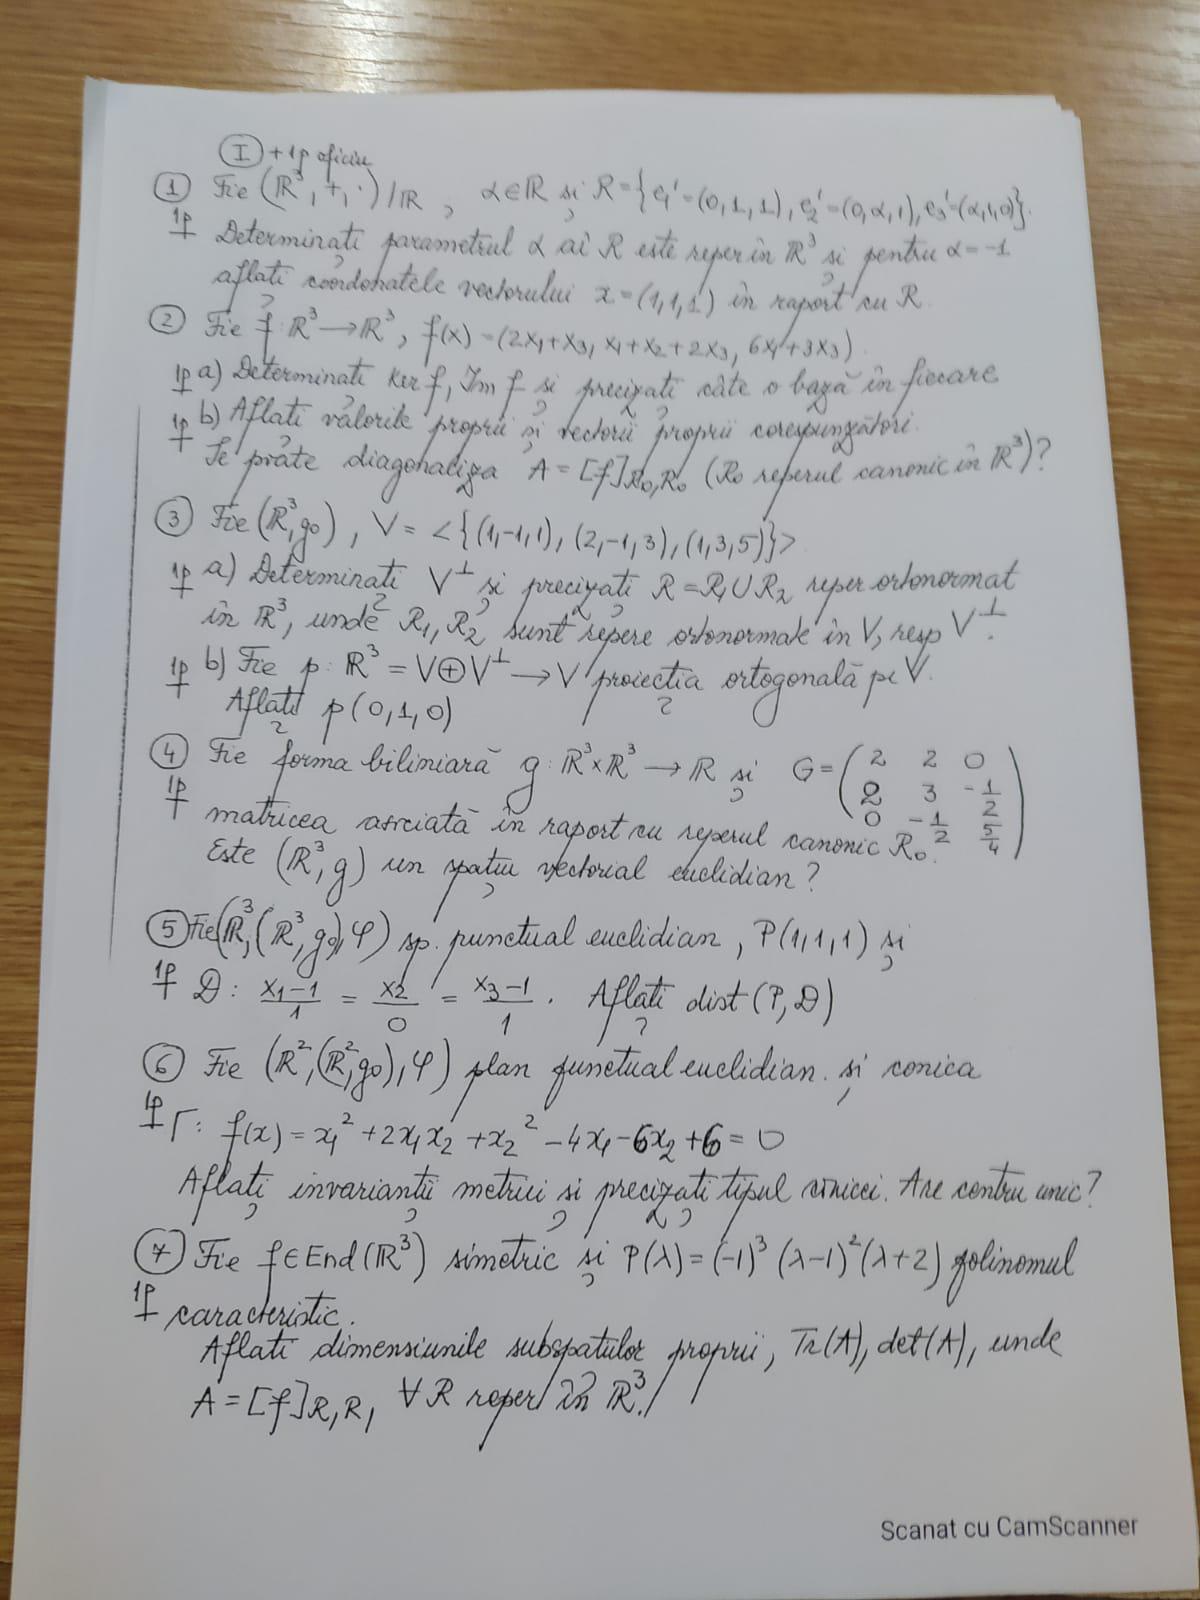 I +1p oficiu
1 Fie (ℝ³, +, ·)/ℝ , α∈ℝ și R={e₁'=(0,1,1), e₂'=(0,α,1), e₃'=(α,1,0)}.
1p Determinați parametrul α aî R este reper în ℝ³ și pentru α=-1
aflați coordonatele vectorului x=(1,1,1) în raport cu R.
2 Fie f: ℝ³→ℝ³, f(x)=(2x₁+x₃, x₁+x₂+2x₃, 6x₁+3x₃).
1p a) Determinați Ker f, Im f și precizați câte o bază în fiecare
1p b) Aflați valorile proprii și vectorii proprii corespunzători.
Se poate diagonaliza A=[f]R₀,R₀ (R₀ reperul canonic în ℝ³)?
3 Fie (ℝ³,g₀), V=<{(1,-1,1), (2,-1,3), (1,3,5)}>
1p a) Determinați V⊥ și precizați R=R₁∪R₂ reper ortonormat
în ℝ³, unde R₁, R₂ sunt repere ortonormate în V, resp V⊥.
1p b) Fie p: ℝ³=V⊕V⊥→V proiecția ortogonală pe V.
Aflați p(0,1,0)
4 Fie forma biliniară g: ℝ³×ℝ³→ℝ și G=( 2 2 0
2 3 -1/2
0 -1/2 5/4 )
1p matricea asociată în raport cu reperul canonic R₀.
Este (ℝ³,g) un spațiu vectorial euclidian?
5 Fie (ℝ³,(ℝ³,g₀),φ) sp. punctual euclidian, P(1,1,1) și
1p D: (x₁-1)/1 = x₂/0 = (x₃-1)/1. Aflați dist(P,D)
6 Fie (ℝ²,(ℝ²,g₀),φ) plan punctual euclidian. și conica
1p Γ: f(x)=x₁²+2x₁x₂+x₂²-4x₁-6x₂+6=0
Aflați invarianții metrici și precizați tipul conicei. Are centru unic?
7 Fie f∈End(ℝ³) simetric și P(λ)=(-1)³(λ-1)²(λ+2) polinomul
1p caracteristic.
Aflați dimensiunile subspațiilor proprii, Tr(A), det(A), unde
A=[f]R,R, ∀R reper în ℝ³.
Scanat cu CamScanner